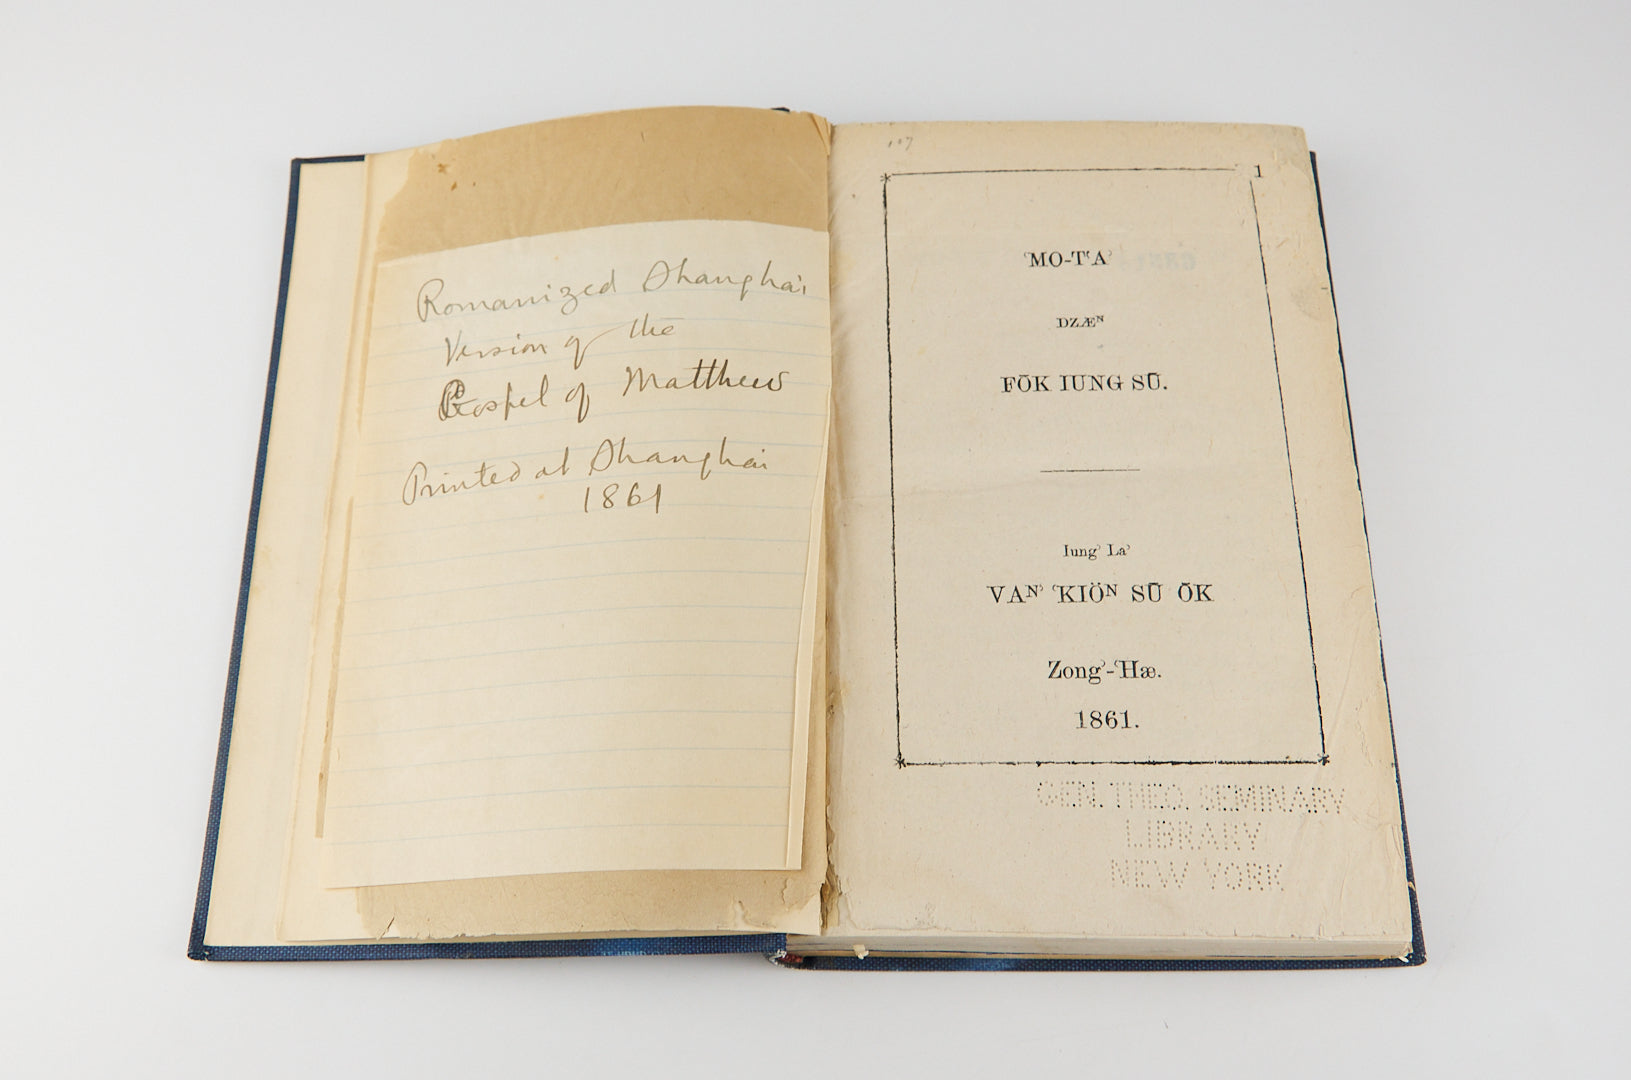 Romanized Shanghai
Version of the
Gospel of Matthew
Printed at Shanghai
1861
107
1
ʽMO-TʽAʾ
DZÆᴺ
FŌK IUNG SŪ.
Iungʾ Laʾ
VAᴺʾ ʽKIÖᴺ SŪ ŌK
Zongʾ-ʽHæ.
1861.
GEN. THEO. SEMINARY
LIBRARY
NEW YORK